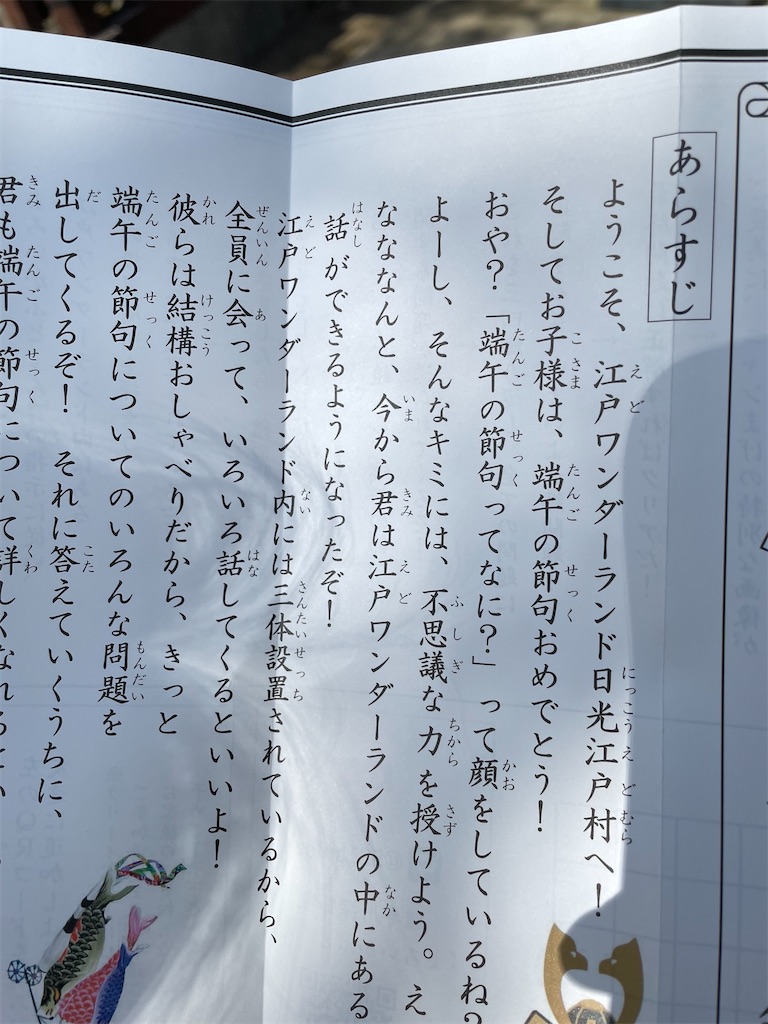 あらすじ
ようこそ、江戸ワンダーランド日光江戸村へ！
そしてお子様は、端午の節句おめでとう！
おや？「端午の節句ってなに？」って顔をしているね？
よーし、そんなキミには、不思議な力を授けよう。え
なななんと、今から君は江戸ワンダーランドの中にある
話ができるようになったぞ！
江戸ワンダーランド内には三体設置されているから、
全員に会って、いろいろ話してくるといいよ！
彼らは結構おしゃべりだから、きっと
端午の節句についてのいろんな問題を
出してくるぞ！　それに答えていくうちに、
君も端午の節句について詳しくなれる